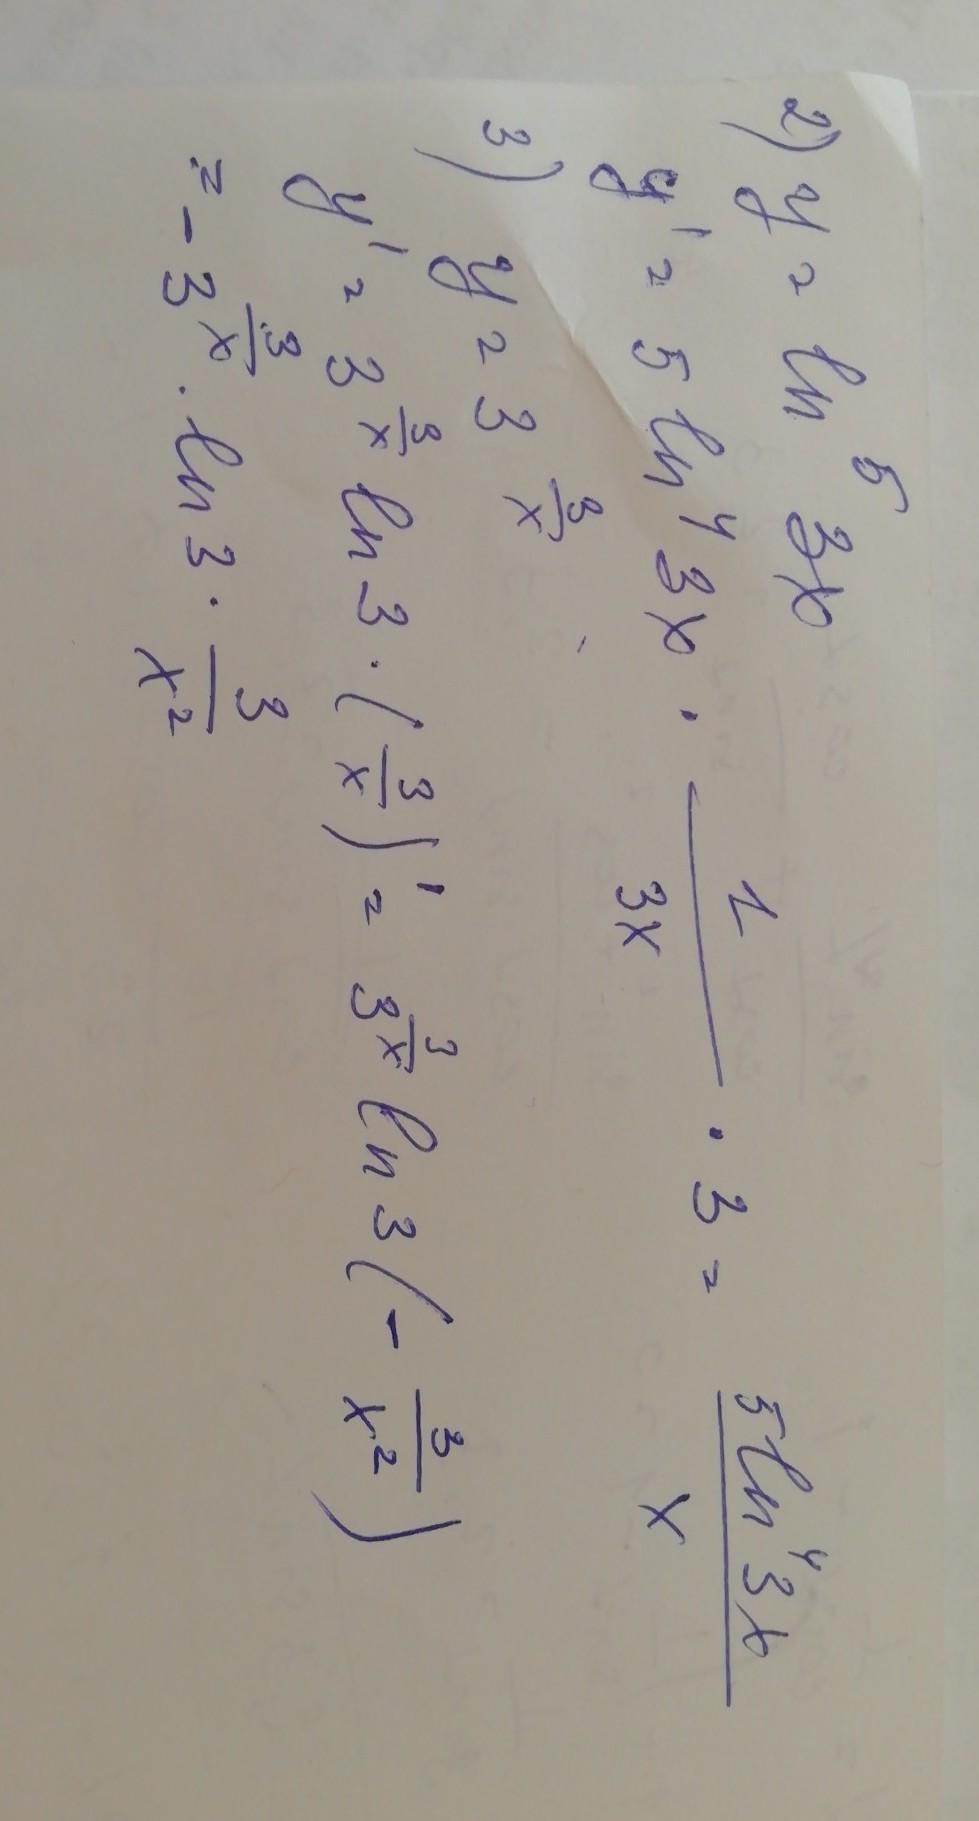 2) y = ln⁵ 3x
y' = 5 ln⁴ 3x · 1/3x · 3 = 5 ln⁴ 3x / x
3) y = 3^(3/x)
y' = 3^(3/x) ln 3 · (3/x)' = 3^(3/x) ln 3 (- 3/x²)
= - 3^(3/x) · ln 3 · 3/x²